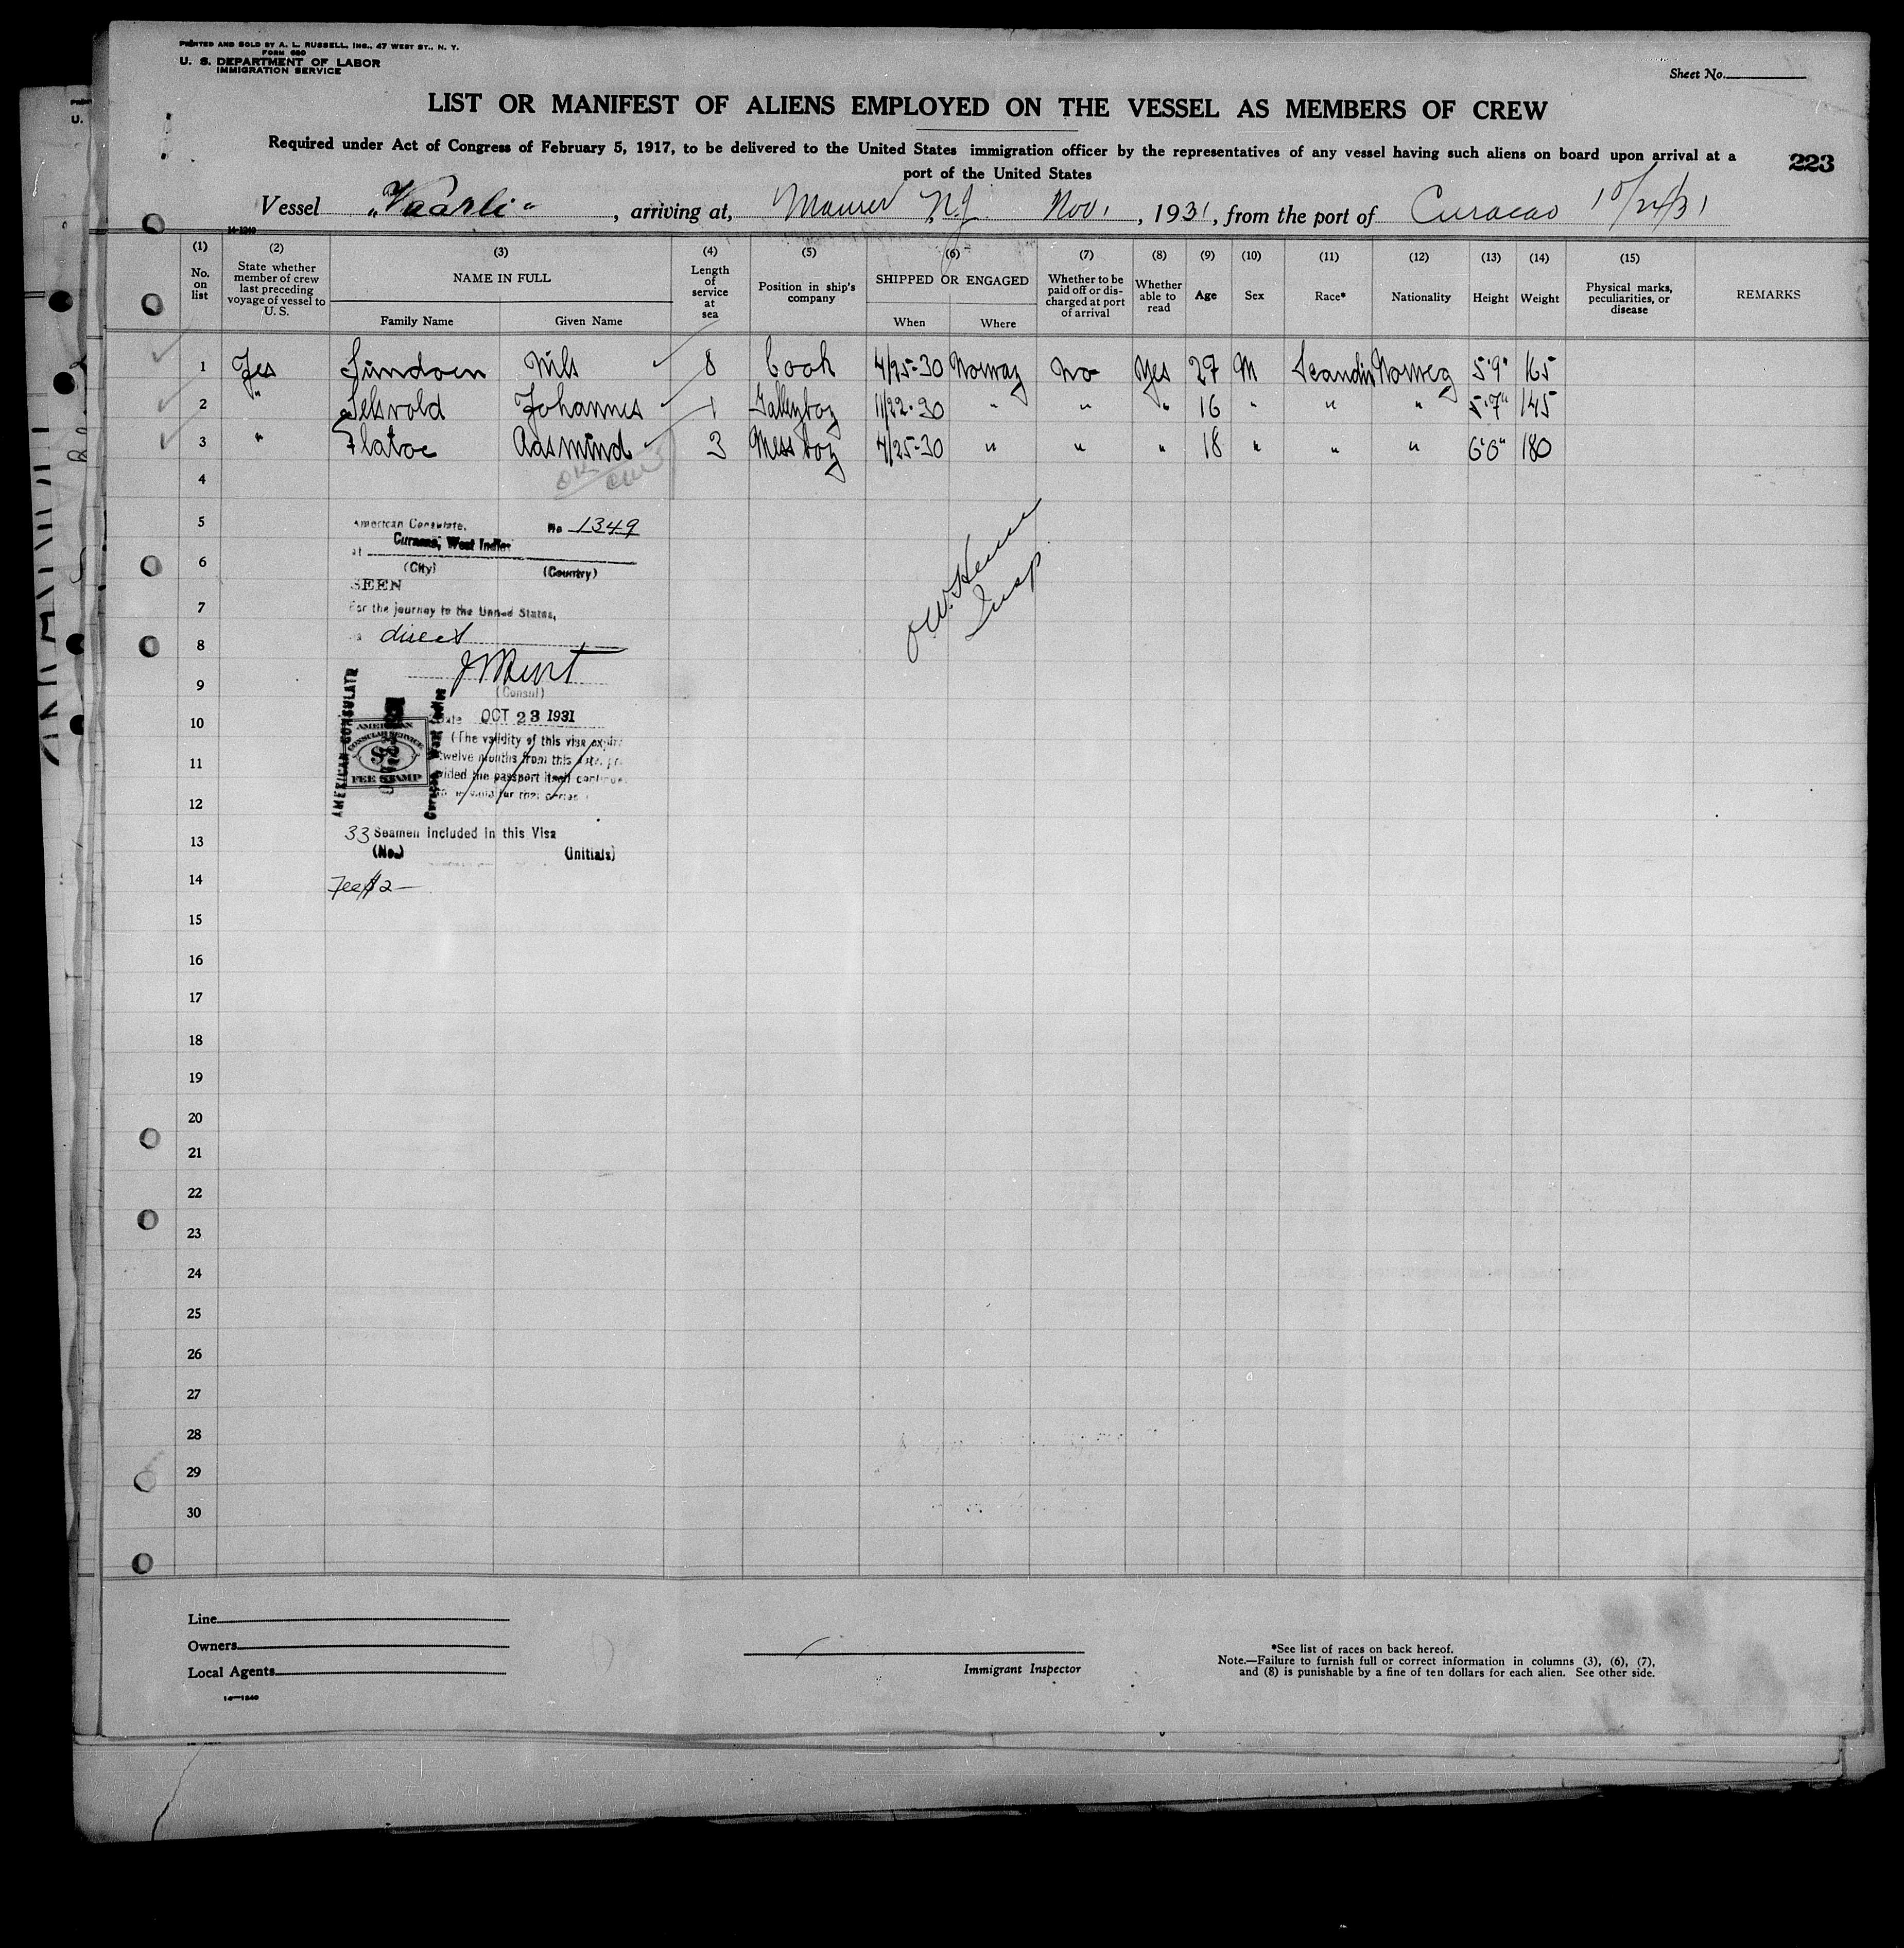 PRINTED AND SOLD BY A. L. RUSSELL, INC., 47 WEST ST., N. Y.
FORM 680
U. S. DEPARTMENT OF LABOR
IMMIGRATION SERVICE
Sheet No.
LIST OR MANIFEST OF ALIENS EMPLOYED ON THE VESSEL AS MEMBERS OF CREW
Required under Act of Congress of February 5, 1917, to be delivered to the United States immigration officer by the representatives of any vessel having such aliens on board upon arrival at a
port of the United States
223
Vessel "Vaarli", arriving at, Maurer N.J. Nov 1, 1931, from the port of Curacao 10/24/31
14-1240
(1) (2) (3) (4) (5) (6) (7) (8) (9) (10) (11) (12) (13) (14) (15)
No. on list
State whether member of crew last preceding voyage of vessel to U. S.
NAME IN FULL
Family Name Given Name
Length of service at sea
Position in ship's company
SHIPPED OR ENGAGED
When Where
Whether to be paid off or discharged at port of arrival
Whether able to read
Age Sex Race* Nationality Height Weight
Physical marks, peculiarities, or disease
REMARKS
1 Yes Sundoen Nils 8 Cook 4/25-30 Norway No Yes 27 M Scandin Norweg 5'9" 165
2 " Selsvold Johannes 1 Galleyboy 11/22-30 " " " 16 " " " 5'7" 145
3 " Flatoe Aasmund 3 Mess boy 4/25-30 " " " 18 " " " 6'0" 180
4
5
6
7
8
9
10
11
12
13
14
15
16
17
18
19
20
21
22
23
24
25
26
27
28
29
30
American Consulate, No 1349
at Curacao, West Indies
(City) (Country)
SEEN
For the journey to the United States,
direct
(Consul)
Date OCT 23 1931
(The validity of this visa expires
twelve months from this date, pro
vided the passport itself continues
to be valid for that period
AMERICAN CONSULATE
Curacao, West Indies
AMERICAN
CONSULAR SERVICE
$2
FEE STAMP
33 Seamen included in this Visa
(No.) (Initials)
Fee $2—
Insp
Line
Owners
Local Agents
14—1240
Immigrant Inspector
*See list of races on back hereof.
Note.—Failure to furnish full or correct information in columns (3), (6), (7),
and (8) is punishable by a fine of ten dollars for each alien. See other side.